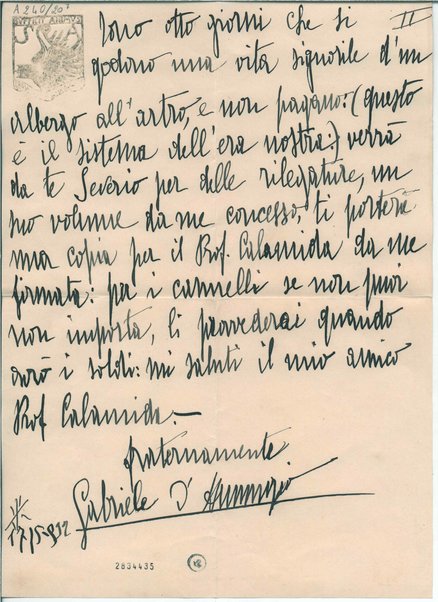 A 240/20
II
Sono otto giorni che si
godono una vita signorile d'un
albergo all'altro, e non pagano: (questo
è il sistema dell'era nostra:) verrà
da te Severio per delle rilegature, un
mio volume da me concesso, ti porterà
una copia per il Prof. Calamida da me
firmata: per i cannelli se non puoi
non importa, li provvederai quando
avrò i soldi: mi saluti il mio amico
Prof Calamida.—
fraternamente
Gabriele D'Annunzio
2834435